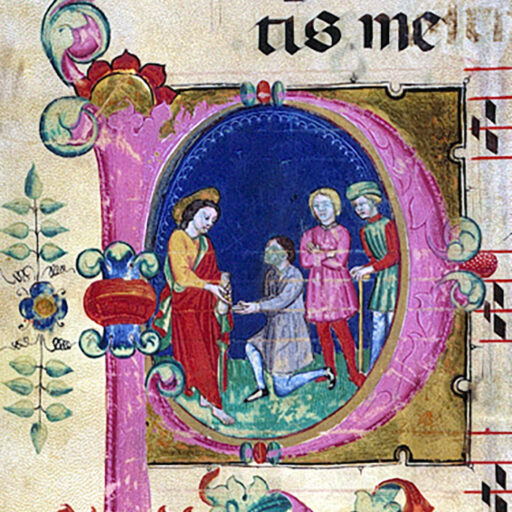 tis me
P